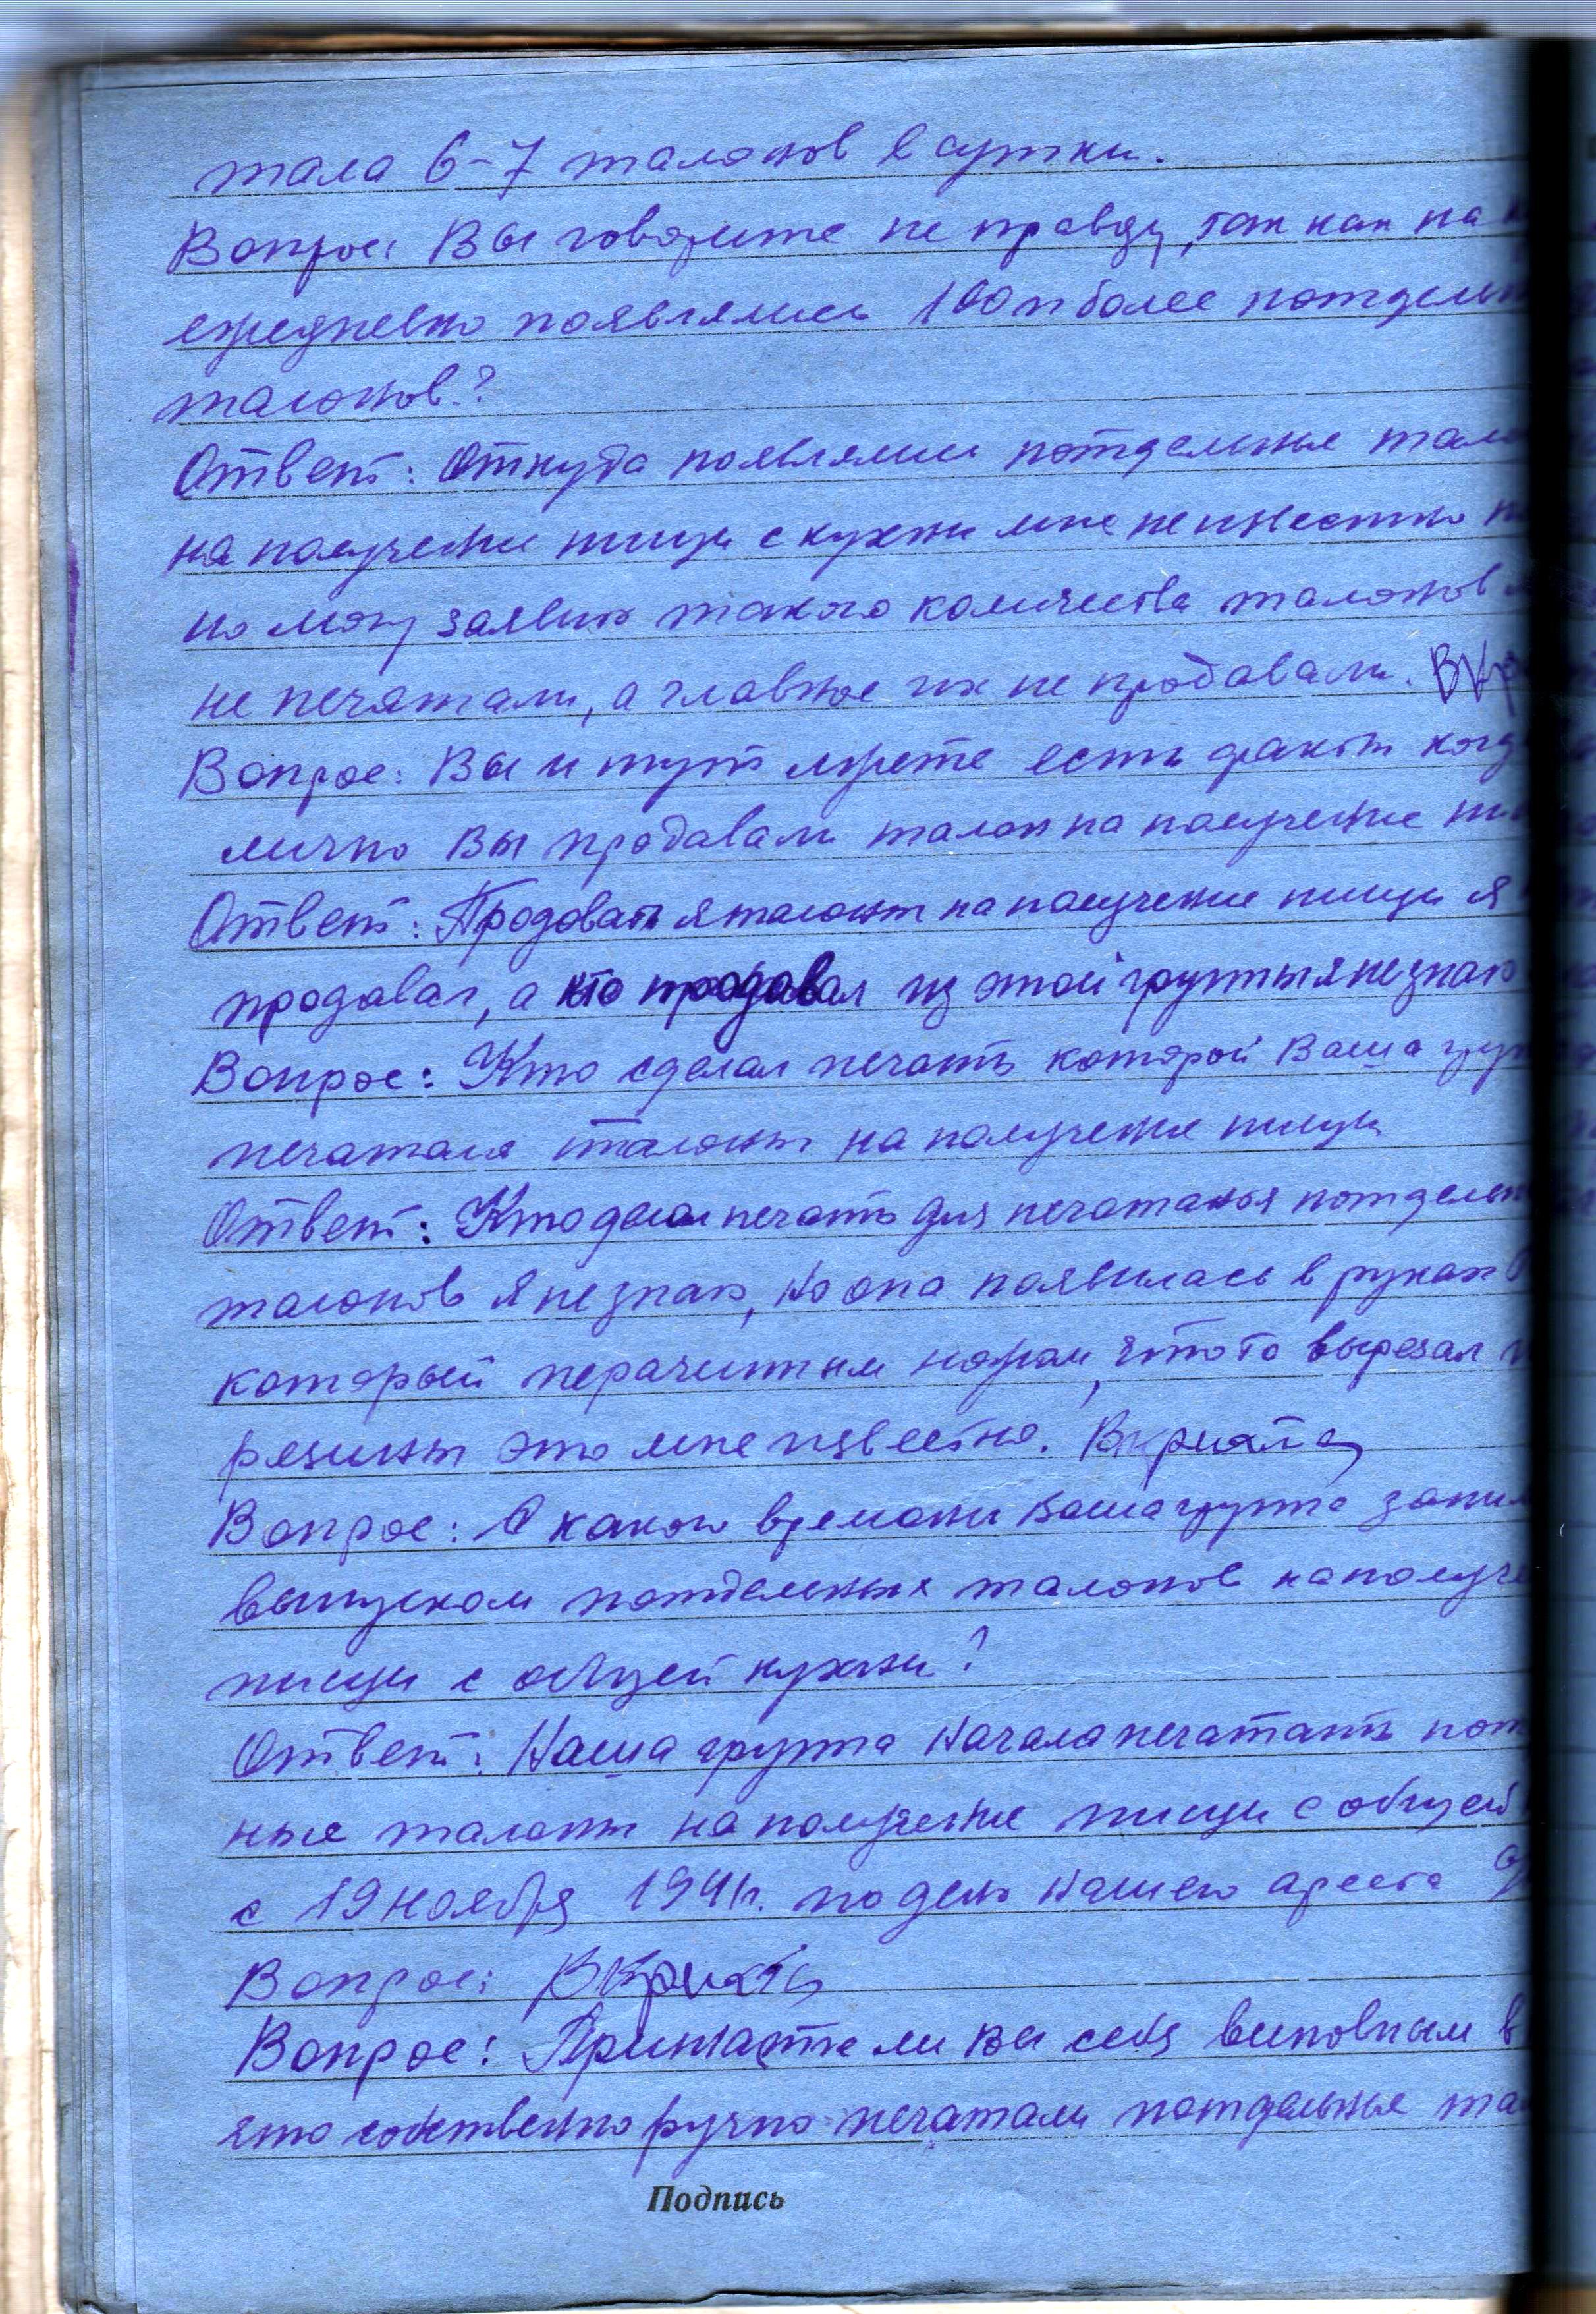 тала 6-7 талонов в сутки.
Вопрос: Вы говорите не правду, так как на
ежедневно появлялись 100 и более потдель
талонов?
Ответ: Откуда появлялись потдельные тало
на получение пищи с кухни мне не известно
но могу заявить такого количества талонов
не печатали, а главное их не продавали.
Вопрос: Вы и тут лжете есть факты когд
лично Вы продавали талон на получение
Ответ: Продовать я талоны на получение пищи я
продовал, а кто продавал из этой группы я не знаю
Вопрос: Кто сделал печать которой Ваша гру
печатала талоны на получение пищи
Ответ: Кто делал печать для печатанья потдель
талонов я не знаю, но она появилась в руках
который перачинным ножом, что то вырезал
резины это мне известно.
Вопрос: С какого времени Ваша группа зани
выпуском потдельных талонов на получе
пищи с общей кухни?
Ответ: Наша группа начала печатать пот
ные талоны на получение пищи с общей
с 19 ноября 1941г. по день нашего ареста
Вопрос:
Вопрос: Признаете ли вы себя виновным в
что собственно ручно печатали потдельные та
Подпись